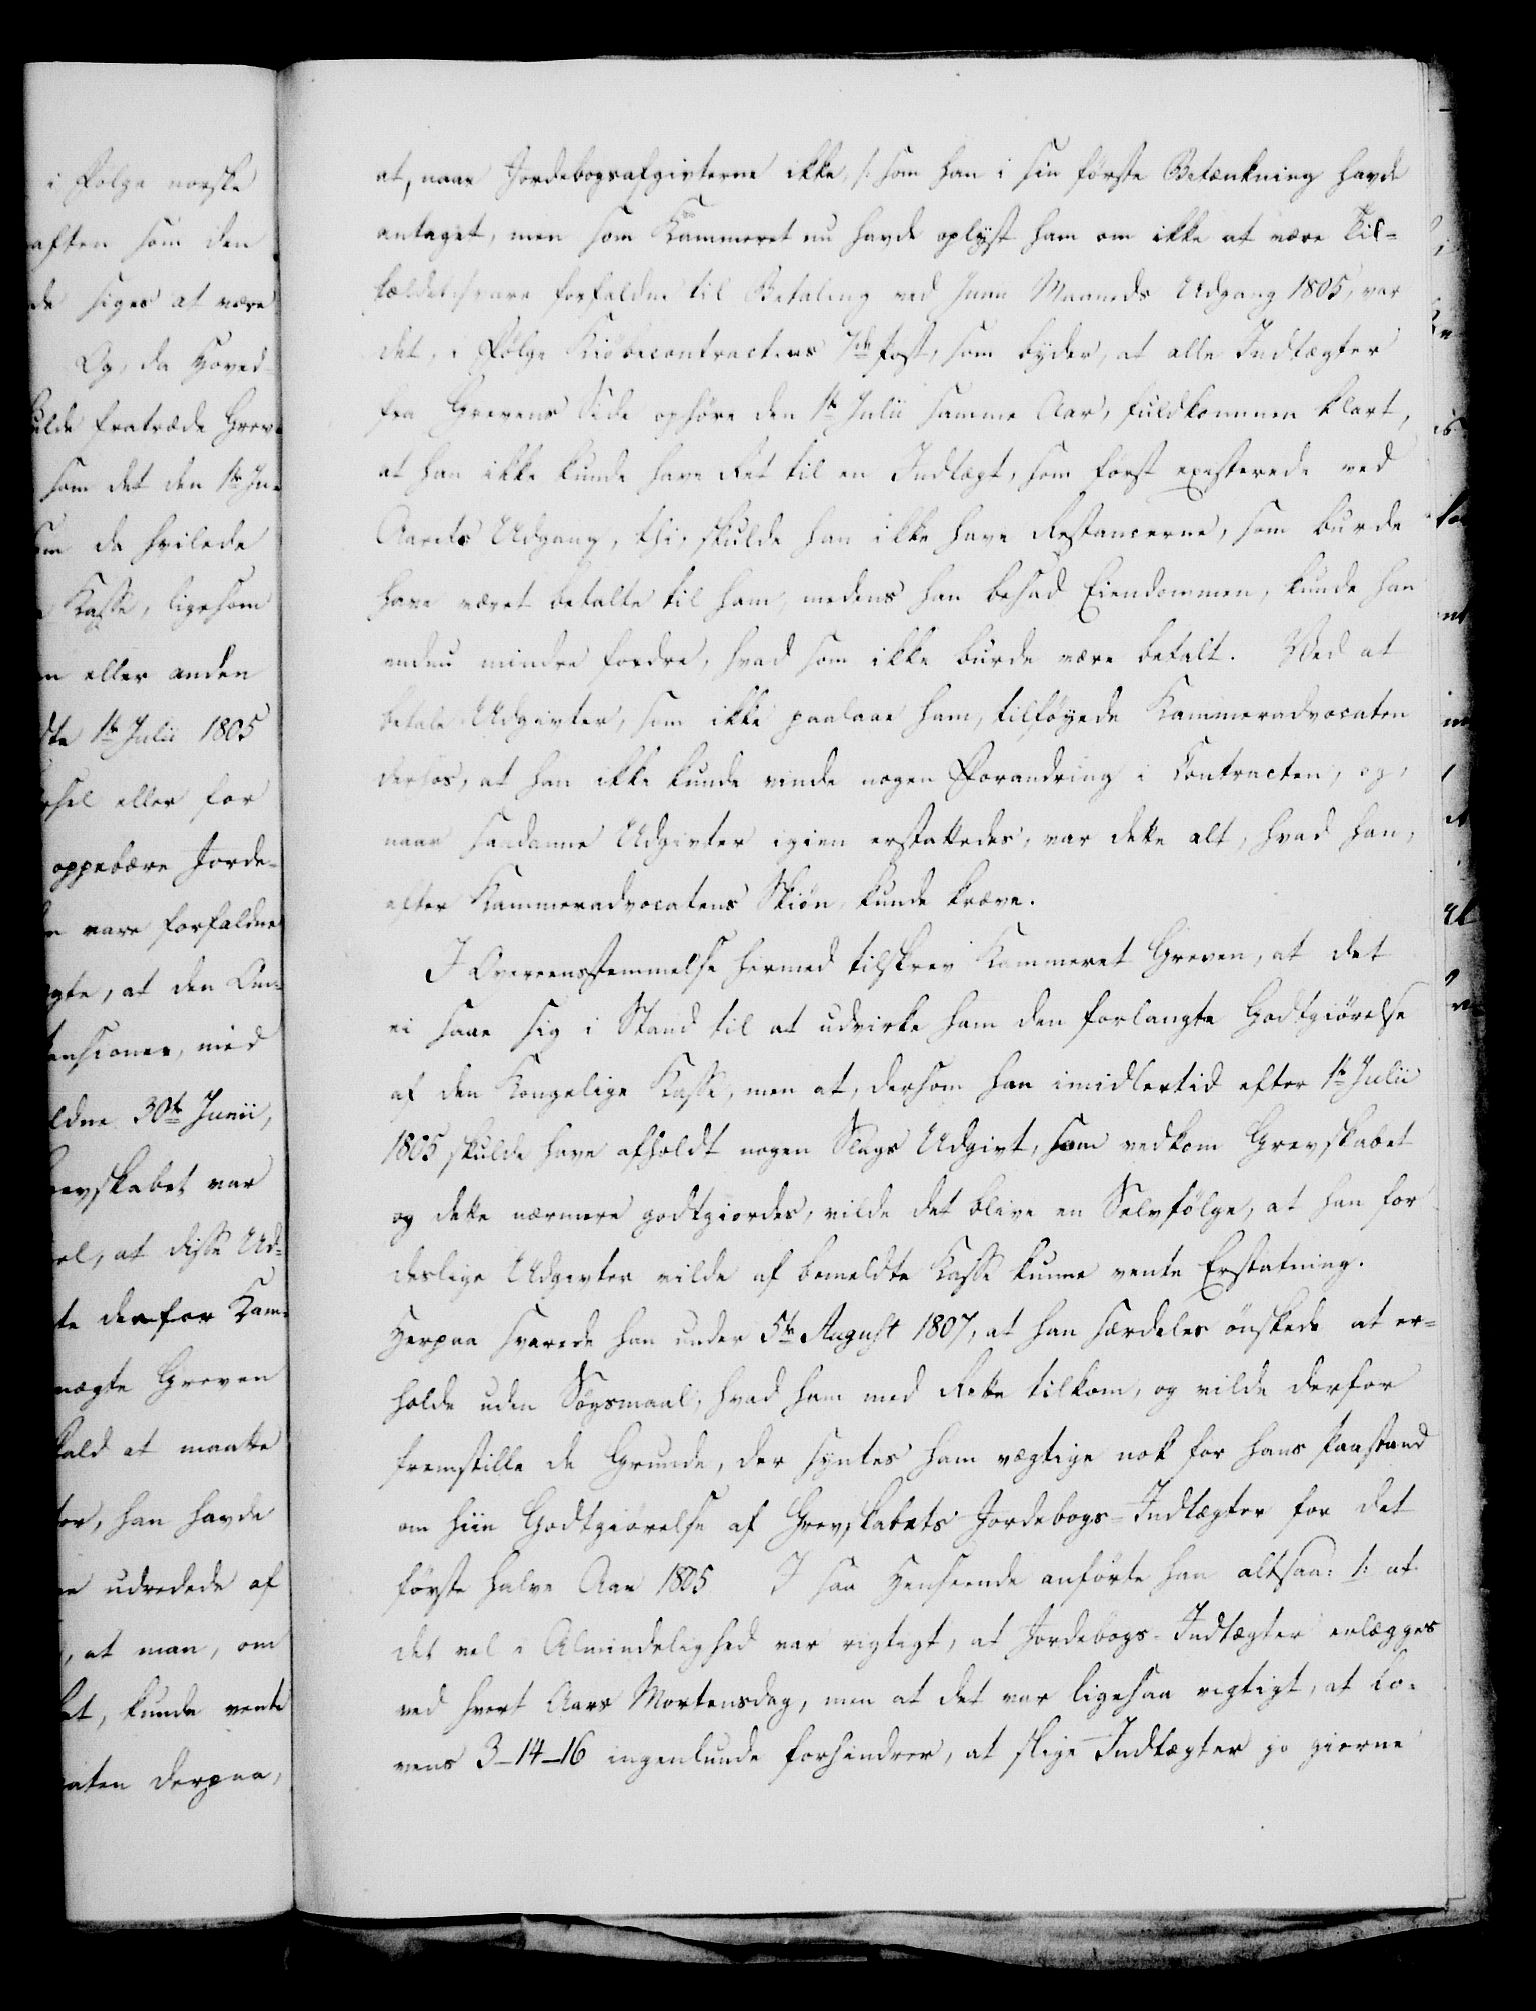 i Følge norske
aften som den
de siges at være
Og, da Hoved-
ulde fratræde Grev-
som det den 1te Ju-
om da hvilede
Kasse, ligesom
n eller anden
dte 1te Julii 1805
sel eller for
oppebære Jorde-
e vare forfaldne
gte, at den Om-
ensioner, med
ldne 30te Junii,
evskabet var
el, at disse Ud-
te derfor Kam-
nægte Greven
kald at maatte
ter, han havde
ne udredede af
, at man, om
et, kunde vente
aten derpaa,
at, naar Jordebogsafgivterne ikke, /: som han i sin første Betænkning havde
antaget, men som Kammeret nu havde oplyst ham om ikke at være Til-
fældet :/ vare forfaldne til Betaling ved Junii Maaneds Udgang 1805, var
det, i Følge Kiöbecontractens 7de Post, som byder, at alle Indtægter
fra Grevens Side ophöre den 1te Julii samme Aar, fuldkommen klart,
at han ikke kunde have Ret til en Indtægt, som först existerede ved
Aarets Udgang, thi, skulde han ikke have Restancerne, som burde
have været betalte til ham medens han besad Eiendommen, kunde han
endnu mindre fordre, hvad som ikke burde være betalt. Ved at
betale Udgivter, som ikke paalaae ham, tilföyede Kammeradvocaten
derhos, at han ikke kunde vinde nogen Forandring i Contracten, og,
naar saadanne Udgivter igien erstattedes, var dette alt, hvad han,
efter Kammeradvocatens Skiön, kunde kræve.
I Overeensstemmelse hermed tilskrev Kammeret Greven, at det
ei saae sig i Stand til at udvirke ham den forlangte Godtgiörelse
af den Kongelige Kasse, men at, dersom han imidlertid efter 1te Julii
1805 skulde have afholdt nogen Slags Udgivt, som vedkom Grevskabet
og dette nærmere godtgiordes, vilde det blive en Selvfölge, at han for
deslige Udgivter vilde af bemeldte Kasse kunne vente Erstatning.
Herpaa svarede han under 5te August 1807, at han særdeles önskede at er-
holde uden Sögsmaal, hvad ham med Rette tilkom, og vilde derfor
fremstille de Grunde, der syntes ham vægtige nok for hans Paastand
om hiin Godtgiörelse af Grevskabets Jordebogs-Indtægter for det
förste halve Aar 1805 I saa Henseende anförte han altsaa: 1: at
det vel i Almindelighed var rigtigt, at Jordebogs-Indtægter erlægges
ved hvert Aars Mortensdag, men at det var ligesaa rigtigt, at Lo-
vens 3-14-16 ingenlunde forhindrer, at slige Indtægter jo gierne